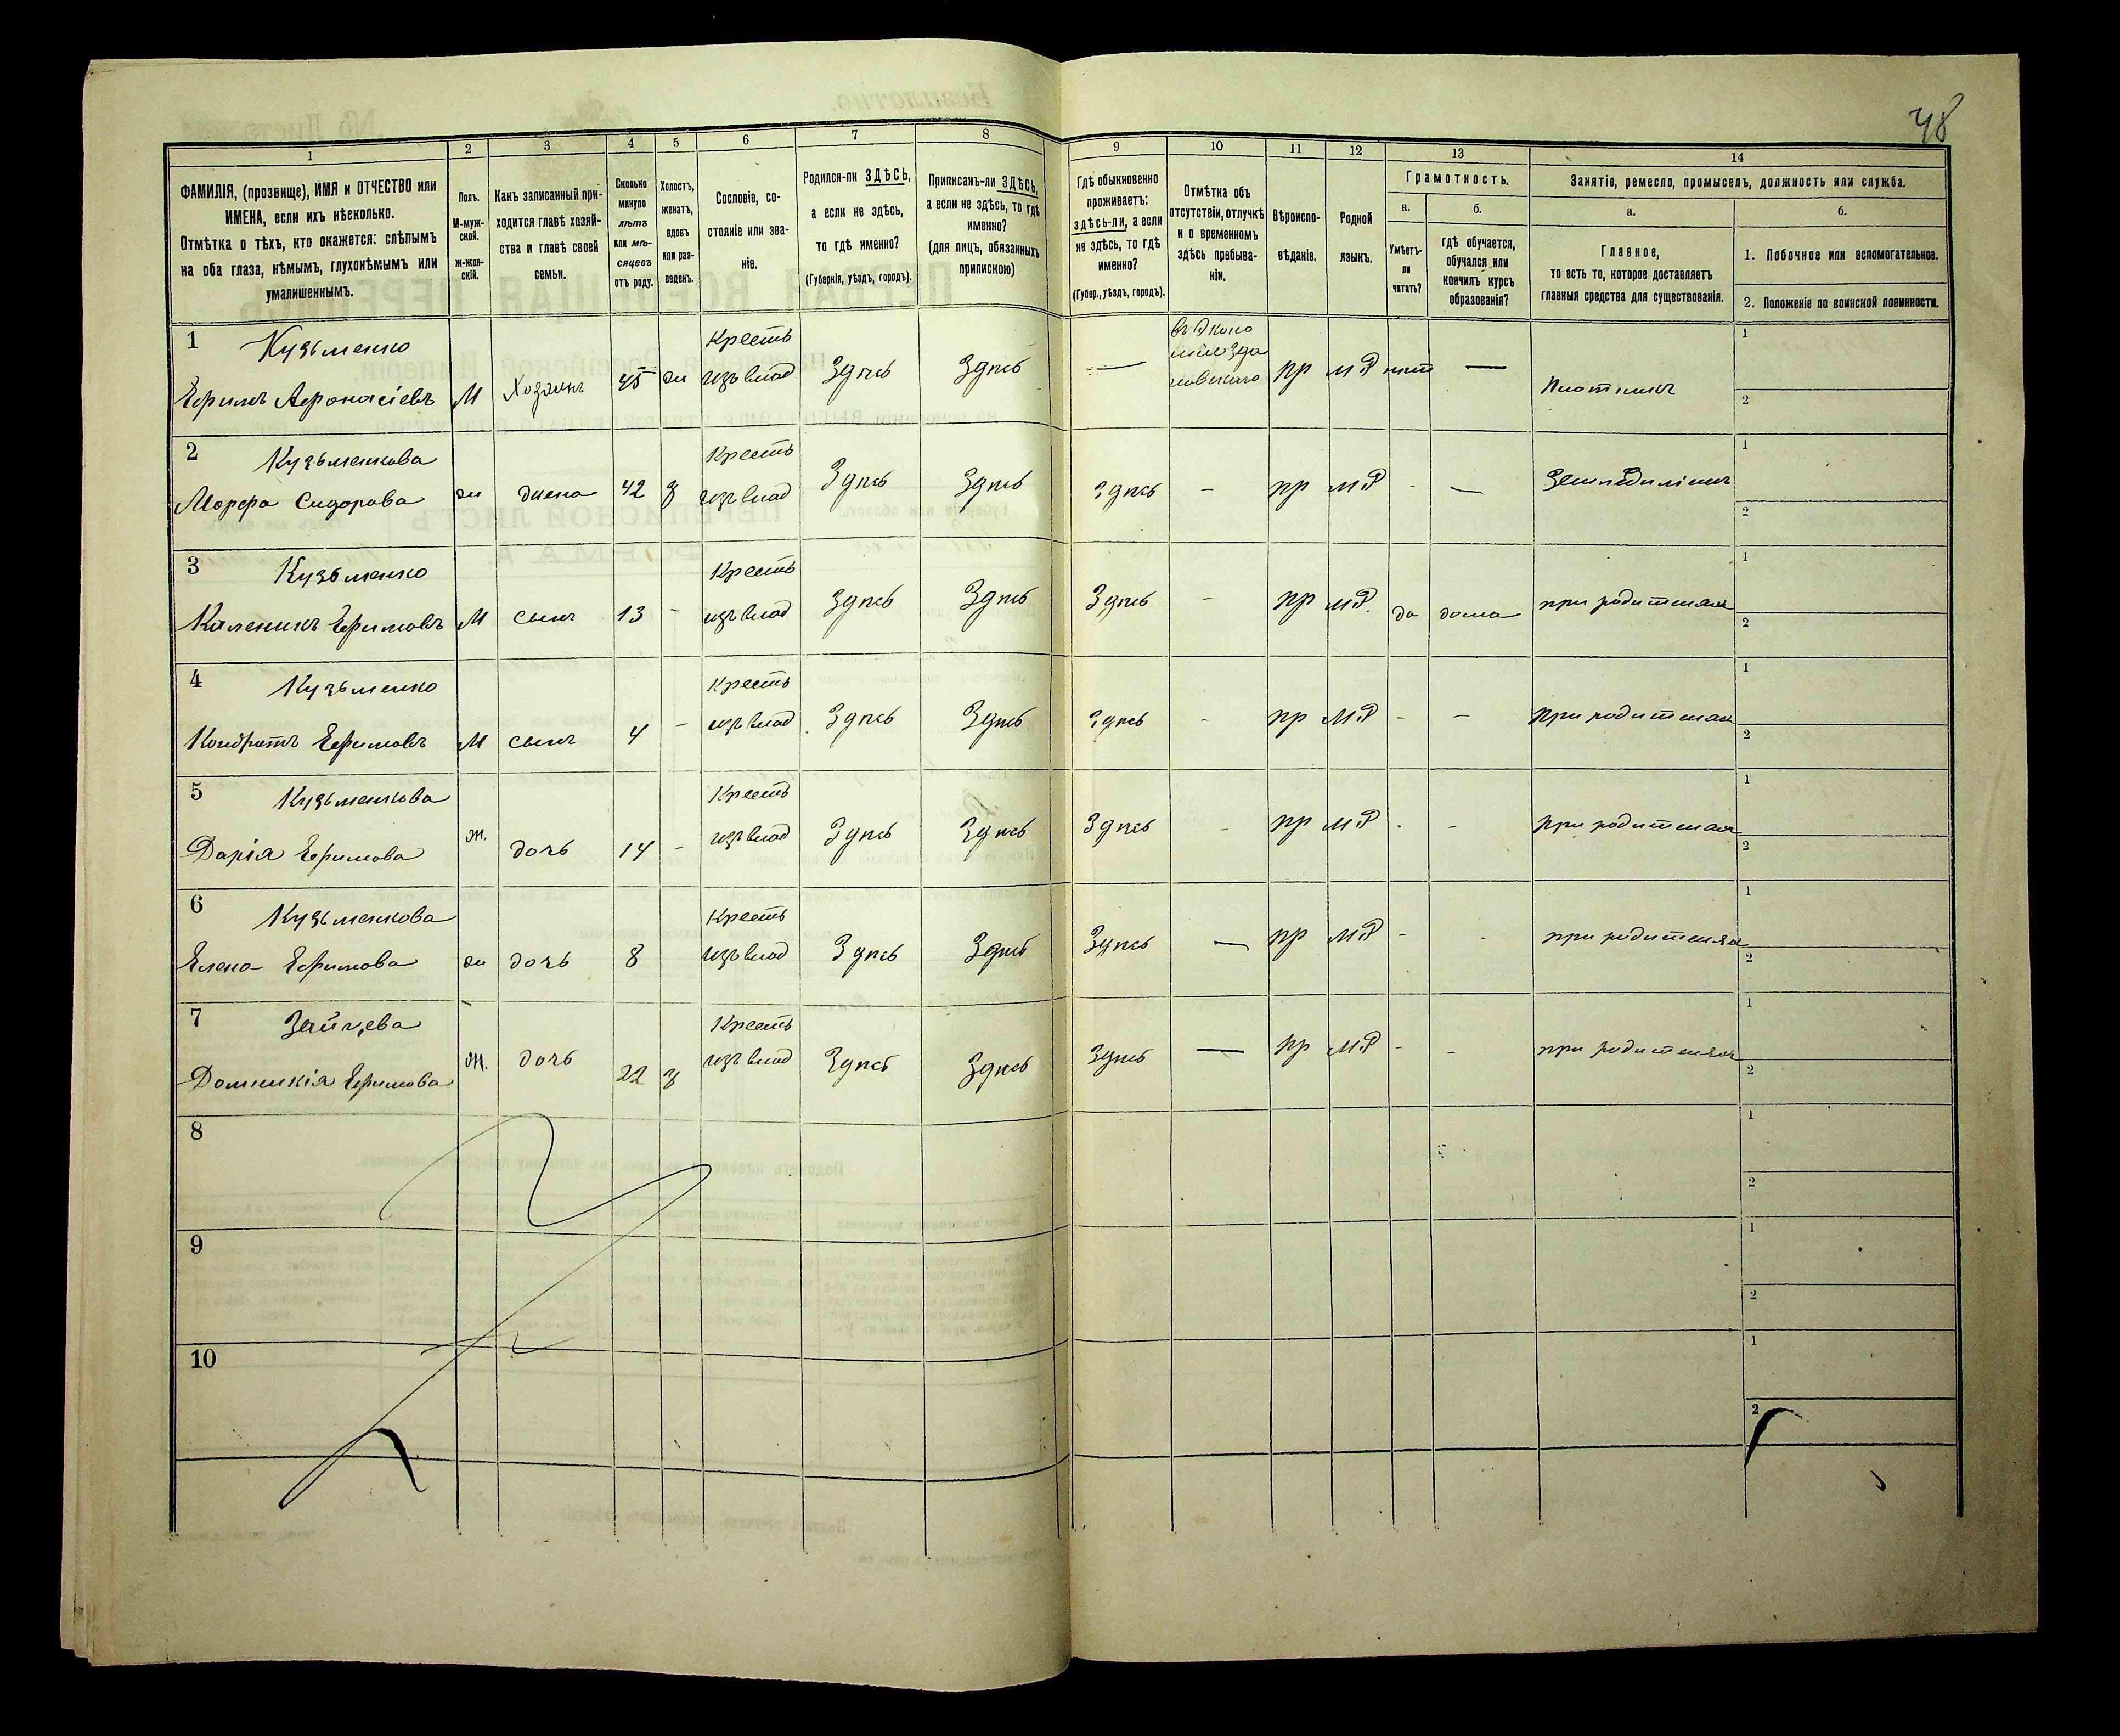 48
1
2
3
4
5
6
7
8
9
10
11
12
13
14
ФАМИЛІЯ, (прозвище), ИМЯ и ОТЧЕСТВО или
ИМЕНА, если ихъ нѣсколько.
Отмѣтка о тѣхъ, кто окажется: слѣпымъ
на оба глаза, нѣмымъ, глухонѣмымъ или
умалишеннымъ.
Полъ.
М-муж-
ской.
Ж-жен-
скій.
Какъ записанный при-
ходится главѣ хозяй-
ства и главѣ своей
семьи.
Сколько
минуло
лѣтъ
или мѣ-
сяцевъ
отъ роду.
Холостъ,
женатъ,
вдовъ
или раз-
веденъ.
Сословіе, со-
стояніе или зва-
ніе.
Родился-ли ЗДѢСЬ,
а если не здѣсь,
то гдѣ именно?
(Губернія, уѣздъ, городъ).
Приписанъ-ли ЗДѢСЬ,
а если не здѣсь, то гдѣ
именно?
(для лицъ, обязанныхъ
припискою)
Гдѣ обыкновенно
проживаетъ:
здѣсь-ли, а если
не здѣсь, то гдѣ
именно?
(Губер., уѣздъ, городъ).
Отмѣтка объ
отсутствіи, отлучкѣ
и о временномъ
здѣсь пребыва-
ніи.
Вѣроиспо-
вѣданіе.
Родной
языкъ.
Грамотность.
а.
Умѣетъ-
ли
читать?
б.
гдѣ обучается,
обучался или
кончилъ курсъ
образованія?
Занятіе, ремесло, промыселъ, должность или служба.
а.
Главное,
то есть то, которое доставляетъ
главныя средства для существованія.
б.
1. Побочное или вспомогательное.
2. Положеніе по воинской повинности.
1 Кузьменко
Ефимъ Афонасіевъ М Хозяинъ 45 ж Крестъ изъ влад Здѣсь Здѣсь — пр МР нѣт — Плотникъ 1 2
2 Кузьменкова
Марфа Сидорова ж жена 42 з Крестъ изъ влад Здѣсь Здѣсь Здѣсь - пр МР - — 1 2
3 Кузьменко
Каленикъ Ефимовъ М сынъ 13 - Крестъ изъ влад Здѣсь Здѣсь Здѣсь - пр МР. да дома при родителях 1 2
4 Кузьменко
Кондратъ Ефимовъ М сынъ 4 - Крестъ изъ влад Здѣсь Здѣсь Здѣсь - пр МР - - при родителях 1 2
5 Кузьменкова
Дарія Ефимова ж. дочь 14 - Крестъ изъ влад Здѣсь Здѣсь Здѣсь - пр МР . - при родителях 1 2
6 Кузьменкова
Елена Ефимова ж дочь 8 Крестъ изъ влад Здѣсь Здѣсь Здѣсь — пр МР - - при родителях 1 2
7 Зайцева
Домникія Ефимова ж. дочь 22 з Крестъ изъ влад Здѣсь Здѣсь Здѣсь — пр МР - - при родителях 1 2
8 1 2
9 1 2
10 1 2